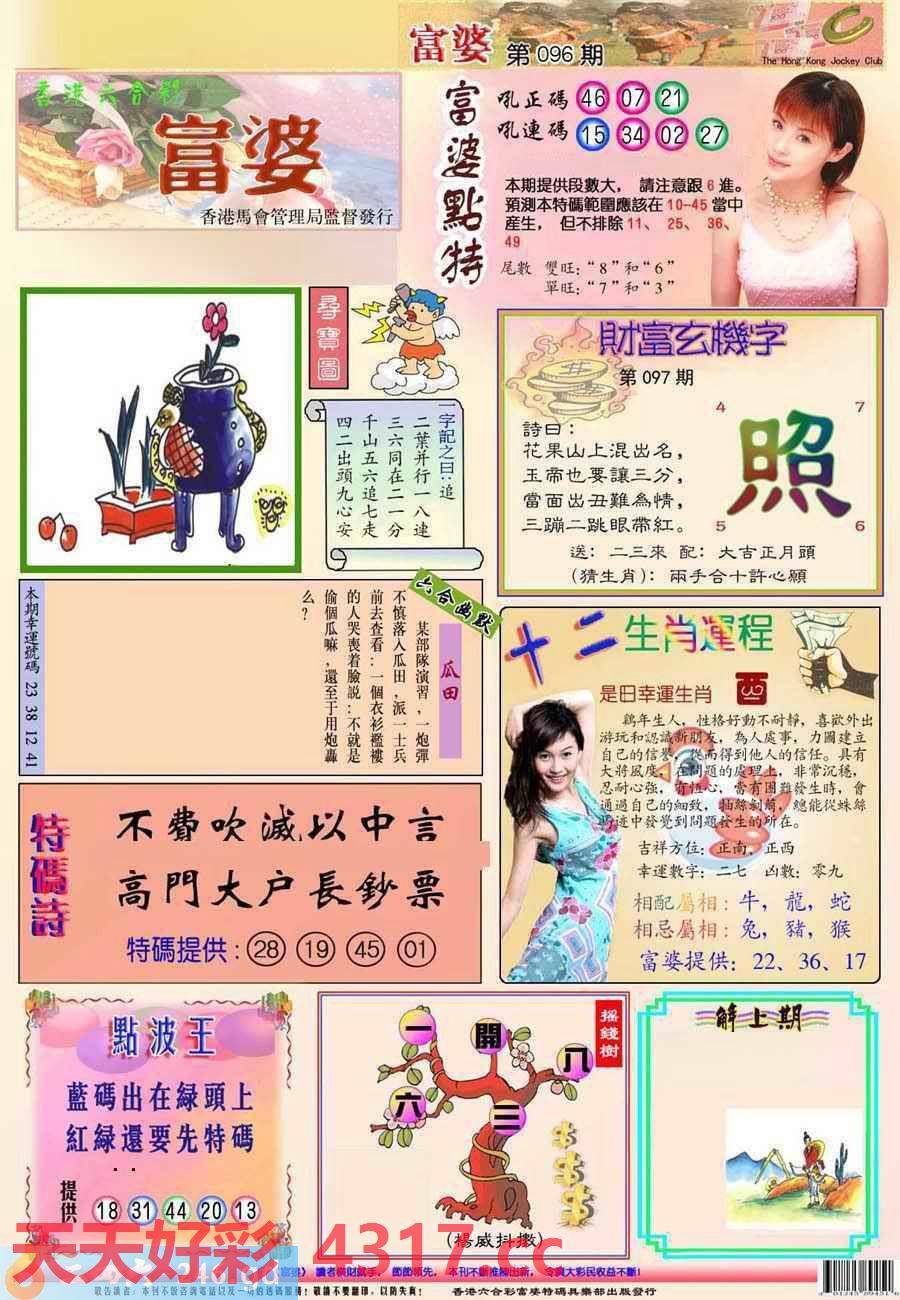 富婆 第096期
The Hong Kong Jockey Club
香港六合彩
富婆
香港馬會管理局監督發行
富婆點特
吼正碼 46 07 21
吼連碼 15 34 02 27
本期提供段數大， 請注意跟6進。
預測本特碼範圍應該在10-45當中
産生， 但不排除11、 25、 36、
49
尾數 雙旺:“8”和“6”
單旺:“7”和“3”
尋寶圖
一字記之曰:追
二葉并行一八連
三六同在二一分
千山五六追七走
四二出頭九心安
財富玄機字
第097期
詩曰:
花果山上混出名，
玉帝也要讓三分，
當面出丑難為情，
三蹦二跳眼帶紅。
4 7
照
5 6
送: 二三來 配: 大吉正月頭
(猜生肖): 兩手合十許心願
六合幽默
瓜田
某部隊演習，一炮彈
不慎落入瓜田，派一士兵
前去查看:一個衣衫襤褸
的人哭喪着臉説:不就是
偷個瓜嘛，還至于用炮轟
么?
本期幸運號碼 23 38 12 41
十二生肖運程
是日幸運生肖 酉
鷄年生人，性格好動不耐靜，喜歡外出
游玩和認識新朋友，為人處事，力圖建立
自己的信譽，從而得到他人的信任。具有
大將風度，在問題的處理上，非常沉穩，
忍耐心強，有恒心，當有困難發生時，會
通過自己的細致，抽絲剝繭，總能從蛛絲
馬迹中發覺到問題發生的所在。
吉祥方位: 正南、正西
幸運數字: 二七 凶數: 零九
相配屬相: 牛，龍，蛇
相忌屬相: 兔，豬，猴
富婆提供: 22、36、17
特碼詩
不費吹滅以中言
高門大户長鈔票
特碼提供: 28 19 45 01
點波王
藍碼出在緑頭上
紅緑還要先特碼
提供 18 31 44 20 13
搖錢樹
一 開 八
六 三
(楊威抖擻)
解上期
天天好彩 4317.cc
富婆》 讀者橫財就手， 節節領先， 本刊不斷推陳出新， 令廣大彩民收益不斷!
敬請不要翻印，以防失真! 香港六合彩富婆特碼俱樂部出版發行